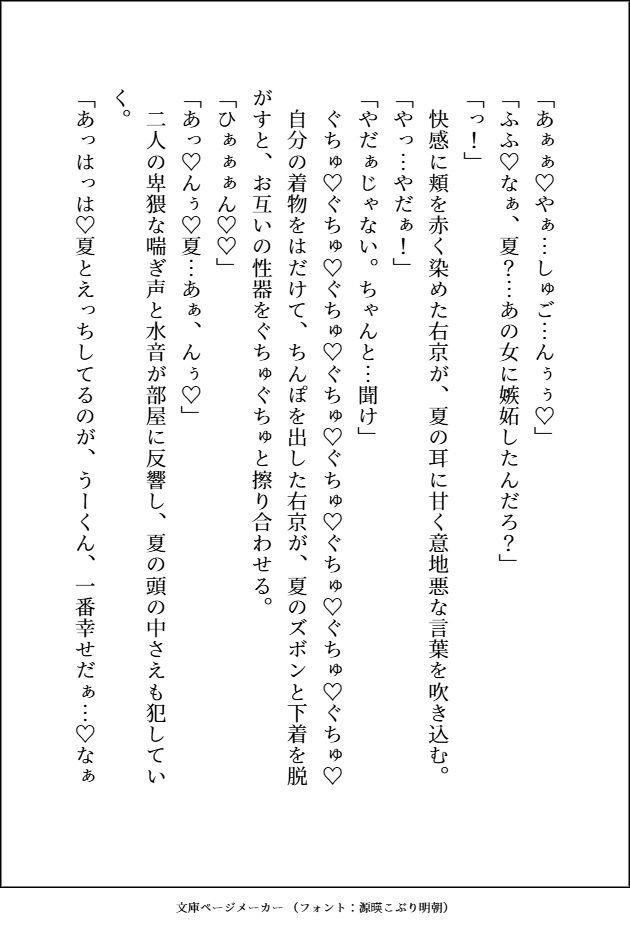 「あぁぁ♡やぁ…しゅご…んぅぅ♡」
「ふふ♡なぁ、夏？…あの女に嫉妬したんだろ？」
「っ！」
　快感に頬を赤く染めた右京が、夏の耳に甘く意地悪な言葉を吹き込む。
「やっ…やだぁ！」
「やだぁじゃない。ちゃんと…聞け」
　ぐちゅ♡ぐちゅ♡ぐちゅ♡ぐちゅ♡ぐちゅ♡ぐちゅ♡ぐちゅ♡ぐちゅ♡
　自分の着物をはだけて、ちんぽを出した右京が、夏のズボンと下着を脱
がすと、お互いの性器をぐちゅぐちゅと擦り合わせる。
「ひぁぁぁん♡♡」
「あっ♡んぅ♡夏…あぁ、んぅ♡」
　二人の卑猥な喘ぎ声と水音が部屋に反響し、夏の頭の中さえも犯してい
く。
「あっはっは♡夏とえっちしてるのが、うーくん、一番幸せだぁ…♡なぁ
文庫ページメーカー （フォント：源暎こぶり明朝）